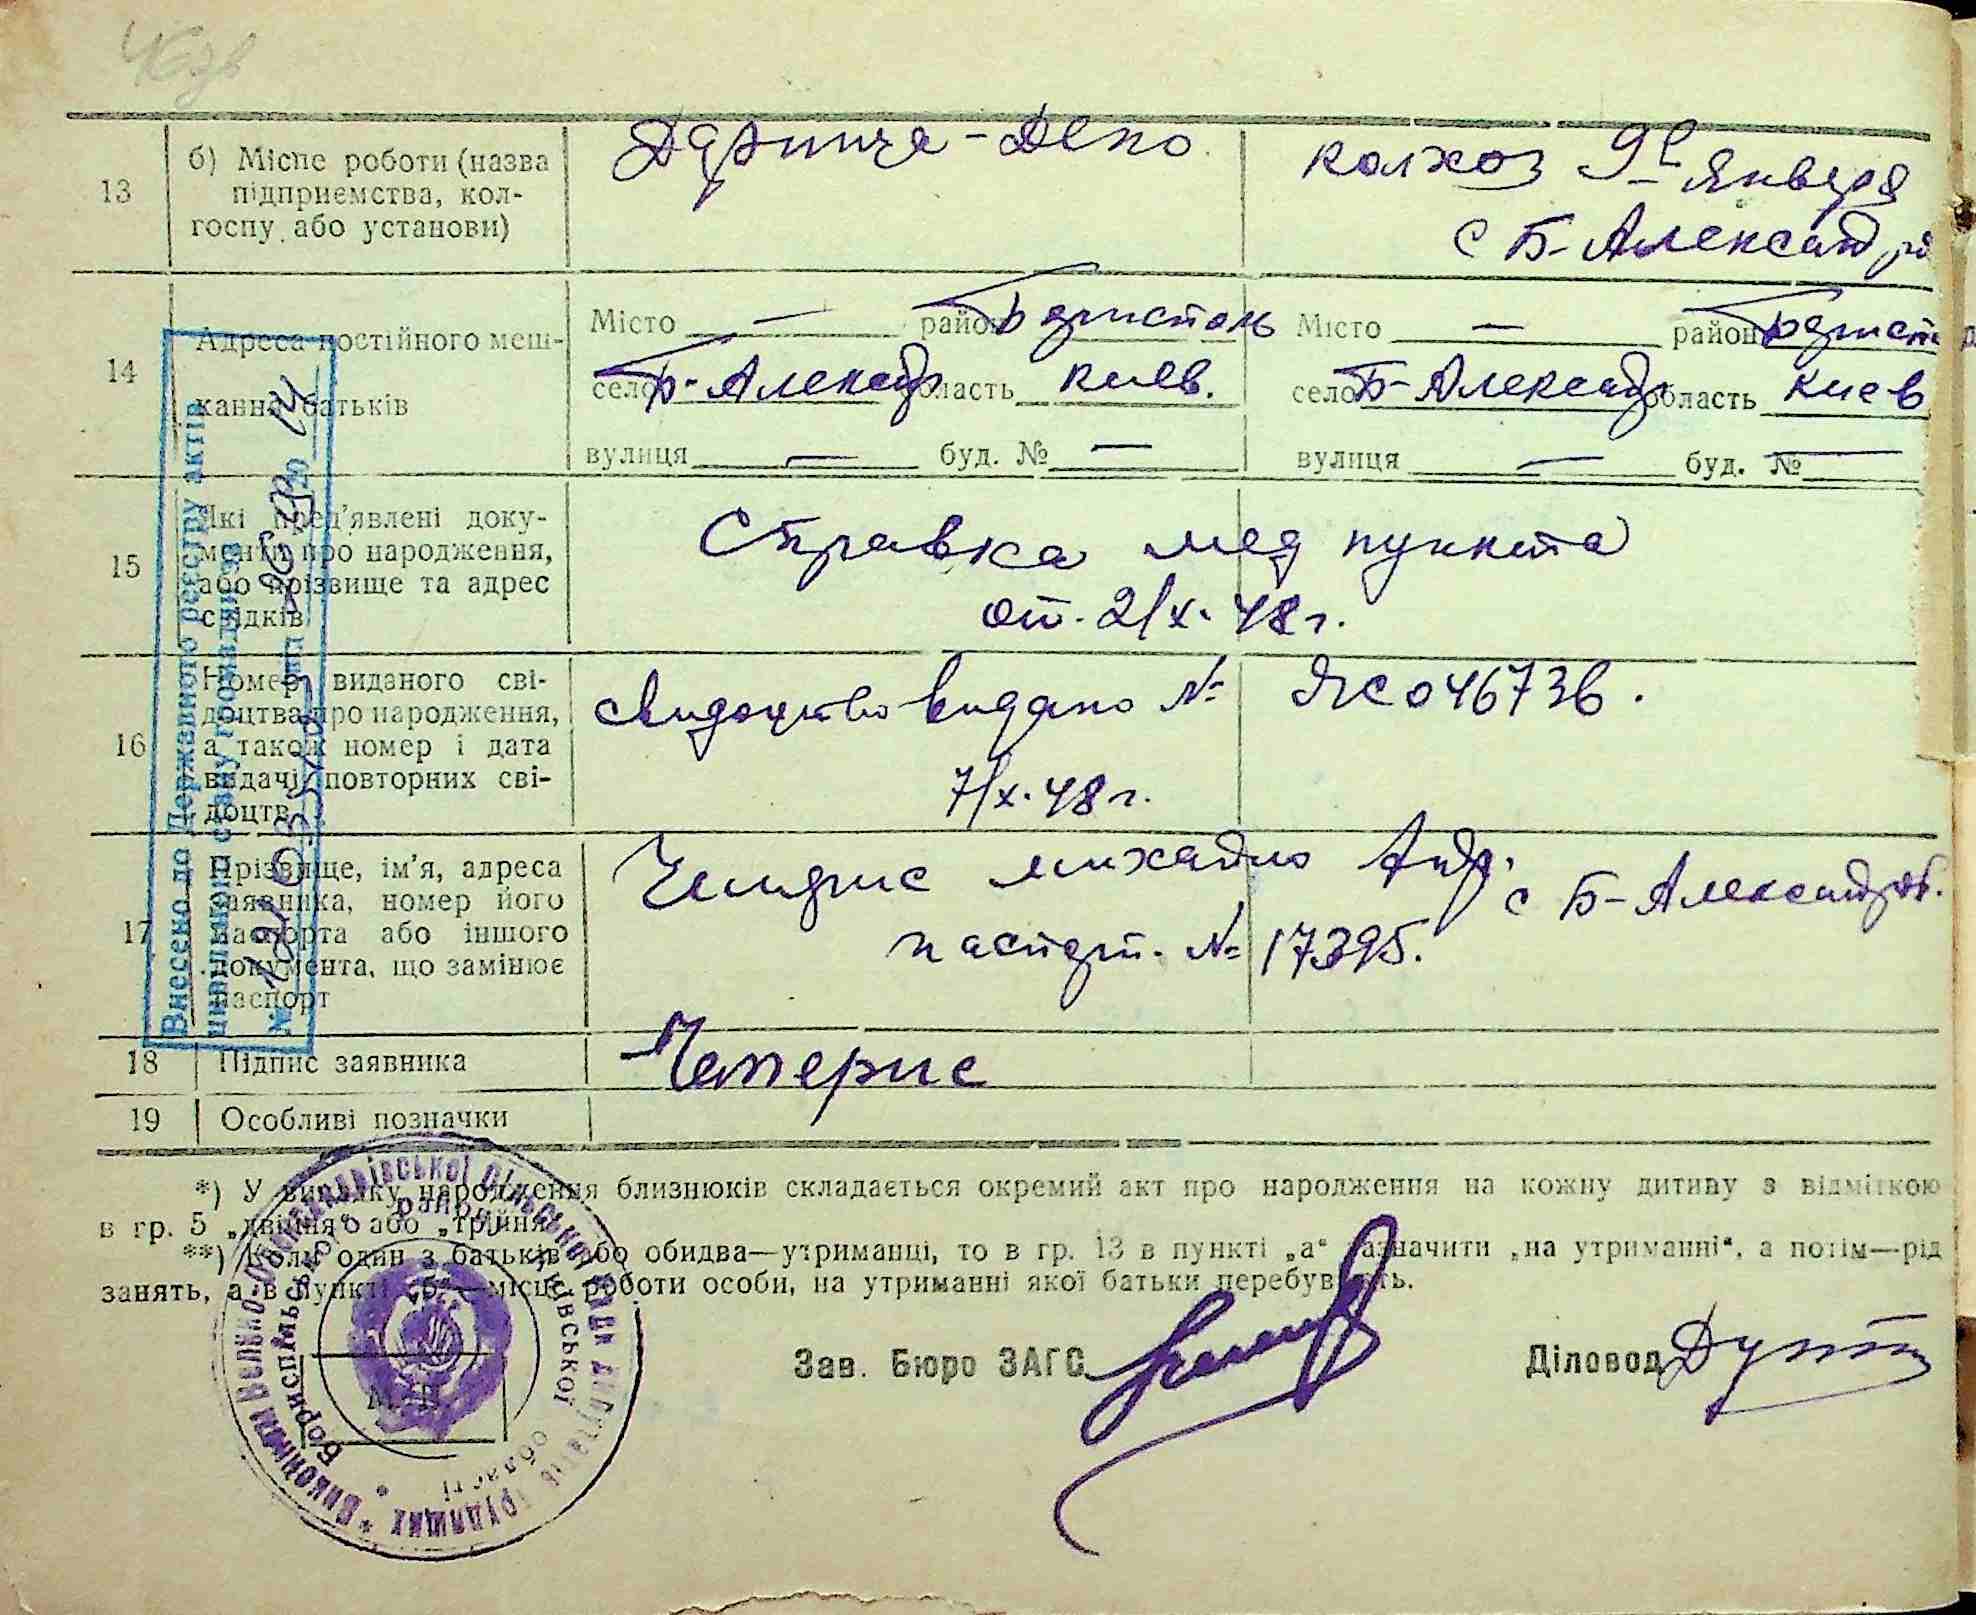 13
б) Місце роботи (назва
підприємства, кол-
госпу або установи)
Дарница - Депо
колхоз 9е Января
с Б-Александро
14
Адреса постійного меш-
кання батьків
Місто — район Бориспол
село Б-Александр область Киев.
вулиця — буд. № —
Місто — район Борисп
село Б-Александр область Киев
вулиця — буд. № —
15
Які пред'явлені доку-
менти про народження,
або прізвище та адрес
свідків
Справка мед пункта
от. 2/х. 48 г.
16
Номер виданого сві-
доцтва про народження,
а також номер і дата
видачі повторних сві-
доцтв
Свидоцтво видано № ЯС 046736.
7/х. 48 г.
17
Прізвище, ім'я, адреса
заявника, номер його
паспорта або іншого
документа, що замінює
паспорт
михайло Андр. с Б-Александров.
паспорт. № 17395.
18
Підпис заявника
19
Особливі позначки
*) У випадку народження близнюків складається окремий акт про народження на кожну дитину з відміткою
в гр. 5 „двійня“ або „трійня“.
**) Коли один з батьків або обидва—утриманці, то в гр. 13 в пункті „а“ зазначити „на утриманні“, а потім—рід
занять, а в пункті „б“—місце роботи особи, на утриманні якої батьки перебувають.
Зав. Бюро ЗАГС
Діловод
М. П.
Внесено до Державного реєстру актів
цивільного стану громадян за
Виконком Велико-Олександрівської сільської Ради депутатів трудящих *
Бориспільського району Київської області *